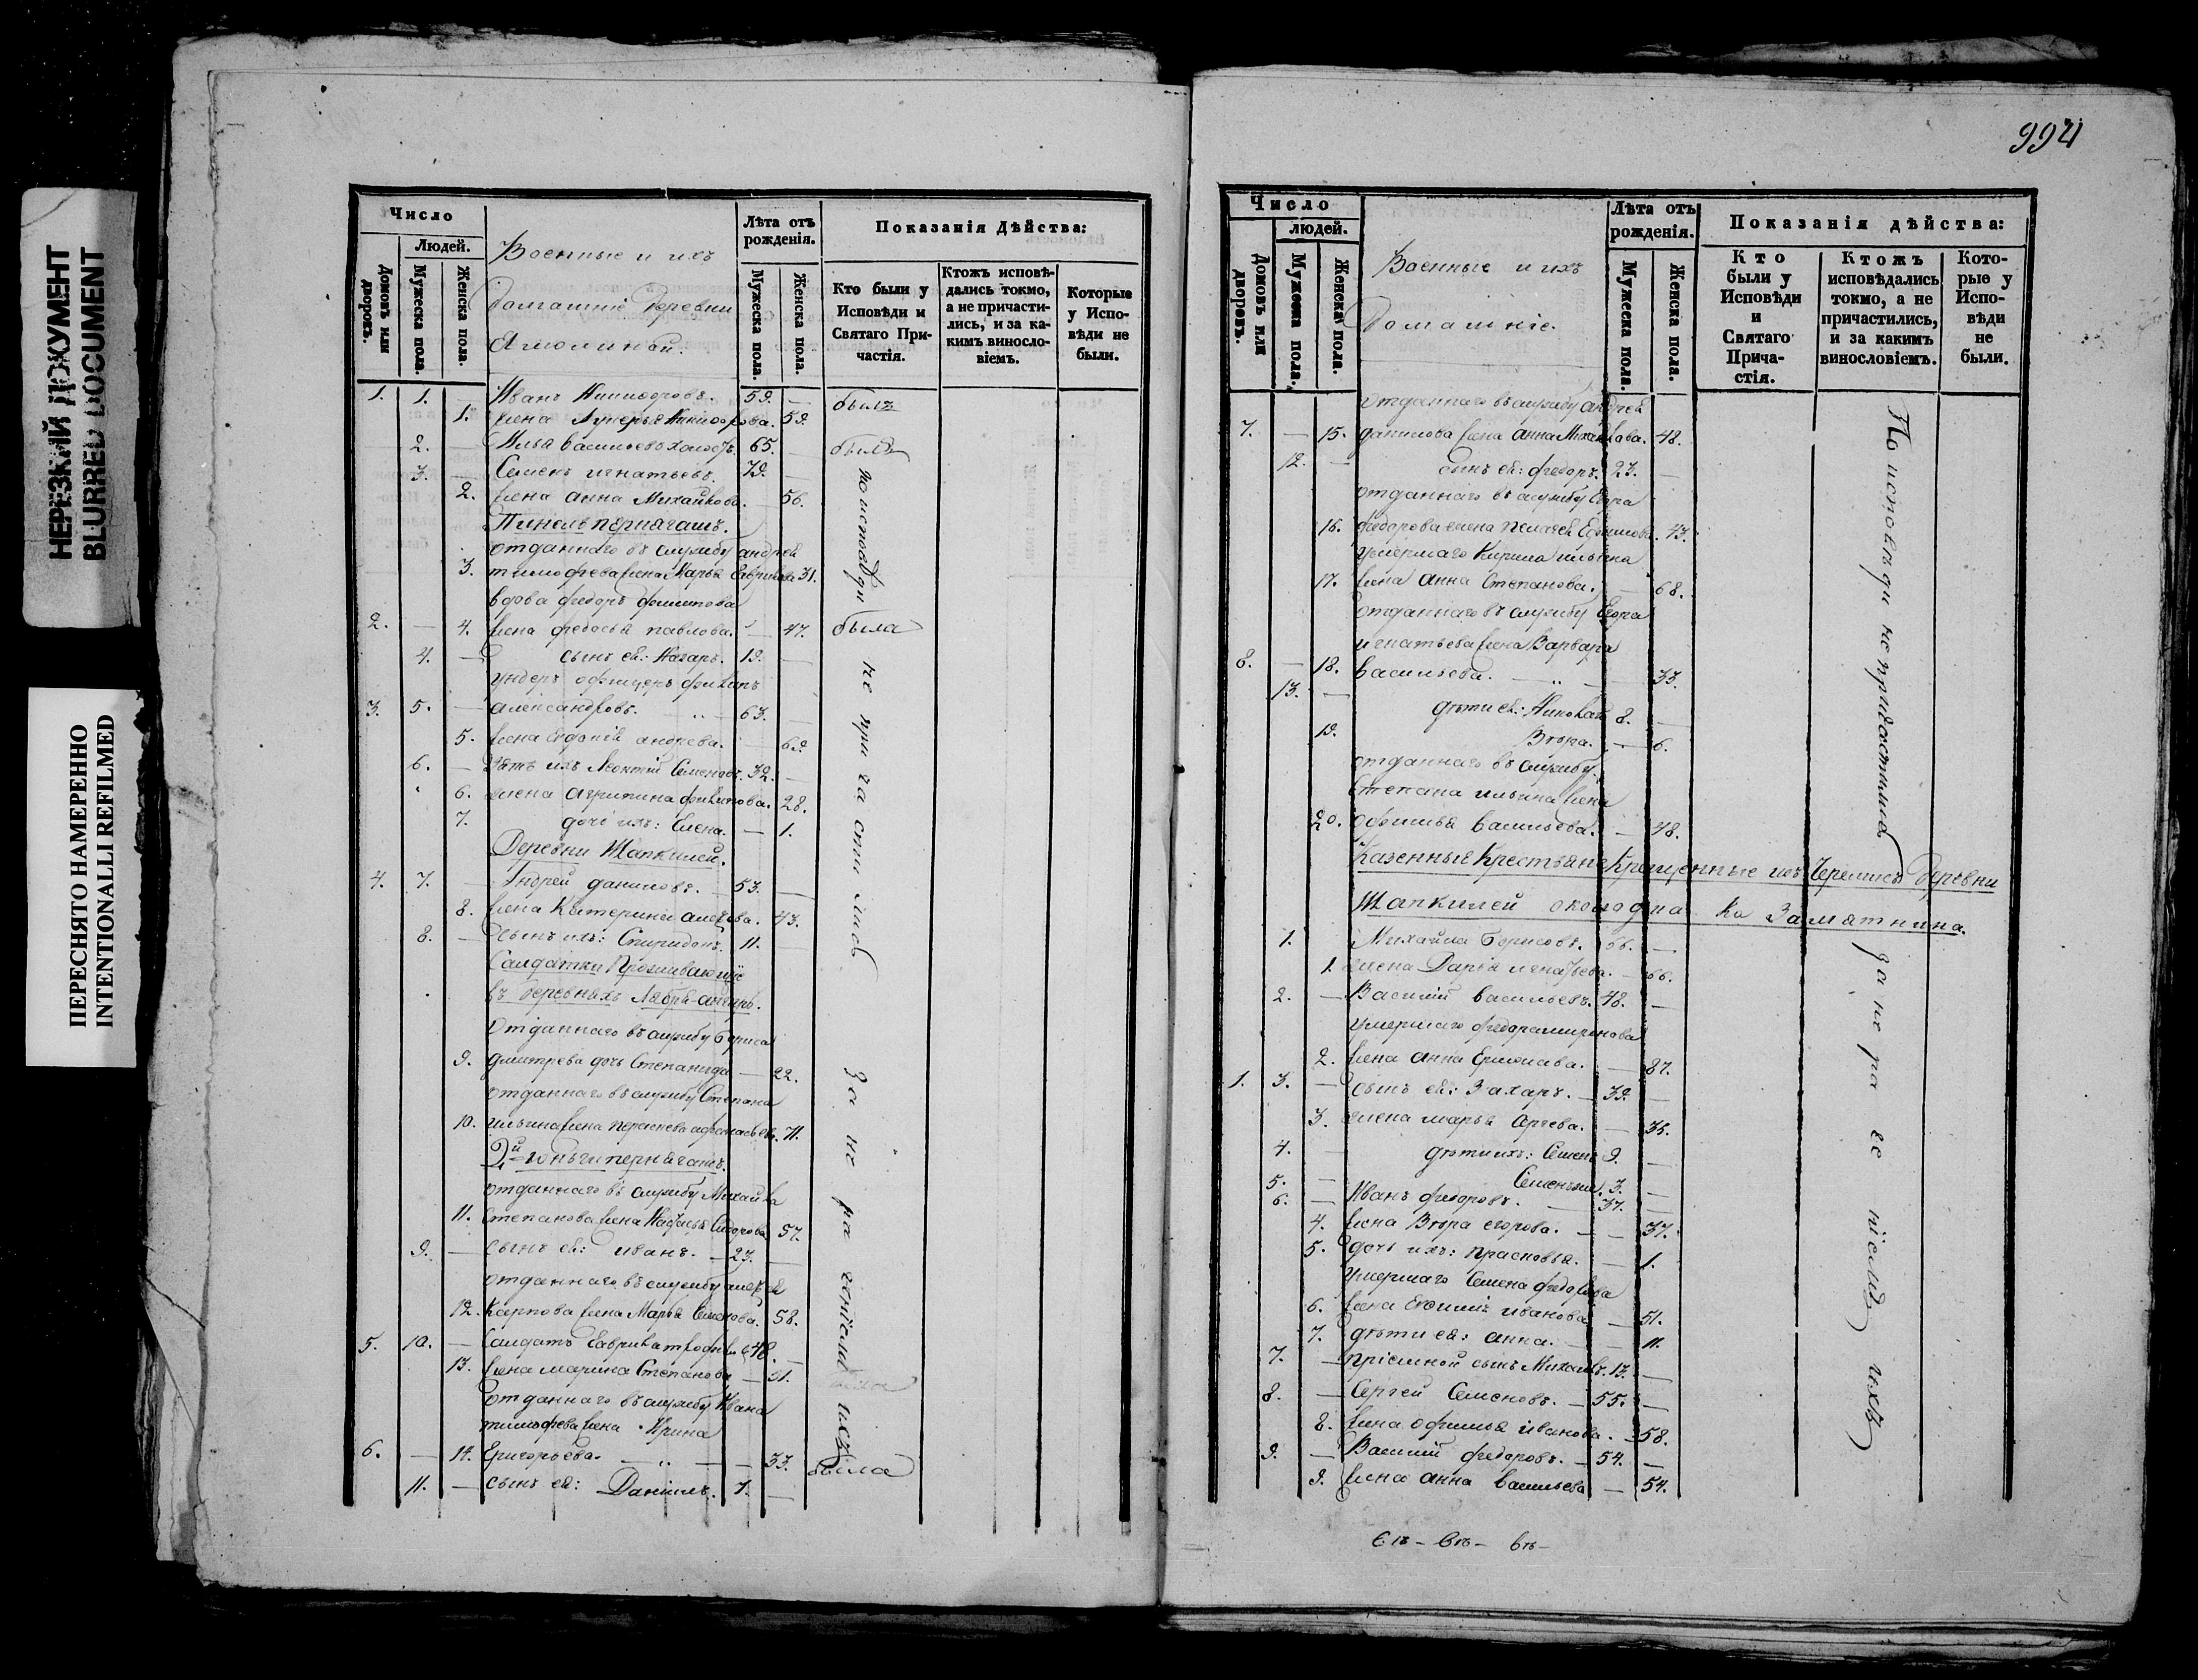 НЕРЕЗКИЙ ДОКУМЕНТ
BLURRED DOCUMENT
ПЕРЕСНЯТО НАМЕРЕННО
INTENTIONALLI REFILMED
Число
Людей.
Домовъ или дворовъ.
Мужеска пола.
Женска пола.
Военные и ихъ
домашніе деревни
Лѣта отъ рожденія.
Мужеска пола.
Женска пола.
Показанія Дѣйства:
Кто были у Исповѣди и Святаго Причастія.
Ктожъ исповѣдались токмо, а не причастились, и за какимъ винословіемъ.
Которые у Исповѣди не были.
1. 1. — Иванъ Никифоровъ. 59. — былъ
1. жена Лукерья Никифорова. 59.
2. — Илья Васильевъ 65. — былъ
3. — Семенъ игнатьевъ. 79. —
2. жена анна Михайлова. — 56.
отданнаго въ службу андрей
3. тимофева жена Марья Гаврилова 31.
вдова федоръ филипова
2. — 4. жена федосья павлова. — 47. была
4. — сынъ ея: Назаръ. 19. —
ундеръ офицеръ филипъ
3. 5. — александровъ. „ — 63. —
5. жена андрева. 69.
6. — Зять ихъ Леонтий Семеновъ. 32. —
6. жена агрипина филипова. 28.
7. дочь ихъ: Елена. — 1.
Деревни Шапкилей.
4. 7. — Андрей даниловъ. — 53. —
8. жена Катерина 43.
8. — сынъ ихъ: Спиридонъ. 11. —
Салдатки Проживающіе
въ деревняхъ
отданнаго въ службу бориса
9. дмитрева дочь Степанида — 22.
отданнаго въ службу Степана
10. ильина жена 71.
отданнаго въ службу Михаила
11. Степанова жена Сидорова 57.
9. — сынъ ея: иванъ. — 27. —
отданнаго въ службу алексея
12. Карпова жена Марья Семенова. 58.
5. 10. — Салдатъ Гаврила 48. —
13. жена марина Степанова — 51.
отданнаго въ службу Ивана
тимофева жена Ирина
6. — 14. Григорьева. — „ — — 33. была
11. — сынъ ея: Даніилъ. 7. —
по исповѣди не причастились за не раченіемъ ихъ
994
Число
людей.
Домовъ или дворовъ.
Мужеска пола.
Женска пола.
Военные и ихъ
домашніе.
Лѣта отъ рожденія.
Мужеска пола.
Женска пола.
Показанія дѣйства:
Кто были у Исповѣди и Святаго Причастія.
Ктожъ исповѣдались токмо, а не причастились, и за какимъ винословіемъ.
Которые у Исповѣди не были.
отданнаго въ службу андрей
7. — 15. данилова жена анна Михайлова. 48.
12. — сынъ ея: федоръ. 27. —
отданнаго въ службу Егора
16. федорова жена пелагея Ефимова. 43.
умершаго Кирила ильина
17. жена анна Степанова. — 68.
отданнаго въ службу Егора
игнатьева жена Варвара
8. — 18. васильева. — „ — 33.
13. — дѣти ея: Николай 8. —
19. Вѣра. — 6.
отданнаго въ службу
Степана ильина жена
20. офимья васильева. — 48.
Казенные Крестьяне Крещенные изъ Черемисъ деревни
Шапкилей околодка ко Замятнина.
1. — Михайла Борисовъ. 66. —
1. жена Дарія игнатьева. — 66.
2. — Василий васильевъ. 48. —
умершаго федора миронова
2. жена анна Ермолаева. — 87.
1. 3. — сынъ ея: Захаръ. — 39. —
3. жена марья — 35.
4. — дѣти ихъ: Семенъ 9. —
5. — 3. —
6. — Иванъ федоровъ. — 37. —
4. жена Вѣра егорова. — 37.
5. дочь ихъ: прасковья. — 1.
умершаго Семена федорова
6. жена иванова — 51.
7. дѣти ея: анна. — 11.
7. — пріемной сынъ Михаилъ. 13. —
8. — Сергей Семеновъ. — 55. —
8. жена офимья иванова. — 58.
9. — Василий федоровъ. — 54. —
9. жена анна васильева — 54.
По исповѣди не причастились за не раченіемъ ихъ